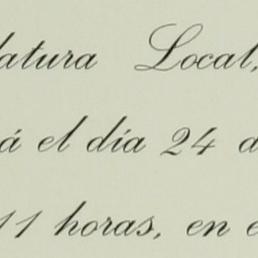 latura Local,
á el día 24 d
11 horas, en e